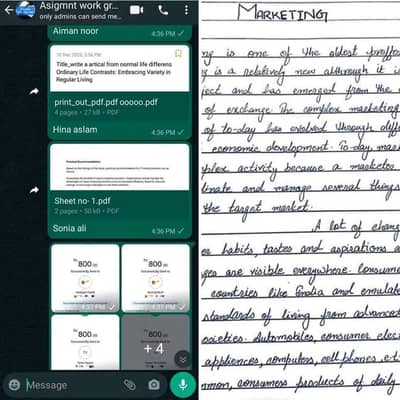 Asigmnt work gr...
only admins can send me...
Aiman noor
10 Dec 2023, 2:56 PM
Title_write a artical from normal life differens
Ordinary Life Contrasts: Embracing Variety in
Regular Living
print_out_pdf.pdf ooooo.pdf
4 pages • 27 kB • PDF
Hina aslam
4:36 PM
Sheet no- 1.pdf
2 pages • 50 kB • PDF
Sonia ali
4:36 PM
800
Successfully Sent to
800
Successfully Sent to
4:37 PM
4:37 PM
800
Successfully Sent to
800
+ 4
Message
MARKETING
ng is one of the oldest proffes
g is a relatively new although it is
ject and has emerged from the
of exchange. The complex marketing
of to-day has evolved through diff
economic development. To-day, mar
plex activity because a marketer
inate and manage several things
the target market.
A lot of chang
er habits, tastes and aspirations a
ges are visible everywhere. Consume
countries like India and emulate
standards of living from advanced
societies. Automobiles, consumer elec
appliances, computers, cell phones .et
mmon, consumers products of daily